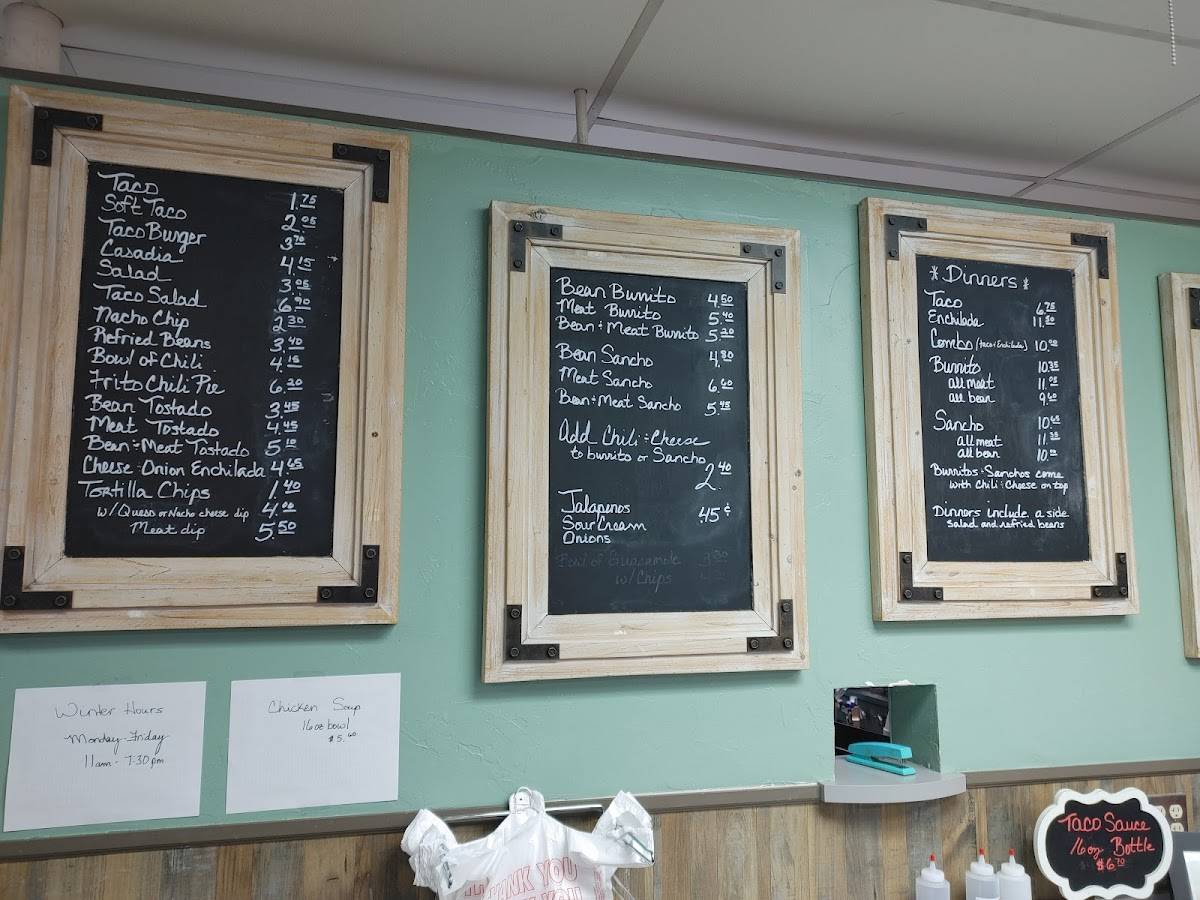 Taco 1.75
Soft Taco 2.05
Taco Burger 3.70
Casadia 4.15
Salad 3.05
Taco Salad 6.90
Nacho Chip 2.30
Refried Beans 3.40
Bowl of Chili 4.15
Frito Chili Pie 6.20
Bean Tostado 3.45
Meat Tostado 4.45
Bean + Meat Tostado 5.10
Cheese + Onion Enchilada 4.65
Tortilla Chips 1.40
w/Queso or Nacho cheese dip 4.00
Meat dip 5.50
Bean Burrito 4.50
Meat Burrito 5.40
Bean + Meat Burrito 5.20
Bean Sancho 4.80
Meat Sancho 6.60
Bean + Meat Sancho 5.45
Add Chili + Cheese
to burrito or Sancho
2.40
Jalapenos .45¢
Sour Cream
Onions
Bowl of Guacamole
w/Chips
* Dinners *
Taco 6.75
Enchilada 11.50
Combo (taco + Enchilada) 10.00
Burrito 10.35
all meat 11.05
all bean 9.60
Sancho 10.65
all meat 11.35
all bean 10.00
Burritos + Sanchos come
with Chili + Cheese on top
Dinners include a side
salad and refried beans
Winter Hours
Monday-Friday
11am - 7:30 pm
Chicken Soup
16 oz bowl
$5.60
THANK YOU
Taco Sauce
16 oz Bottle
$6.70